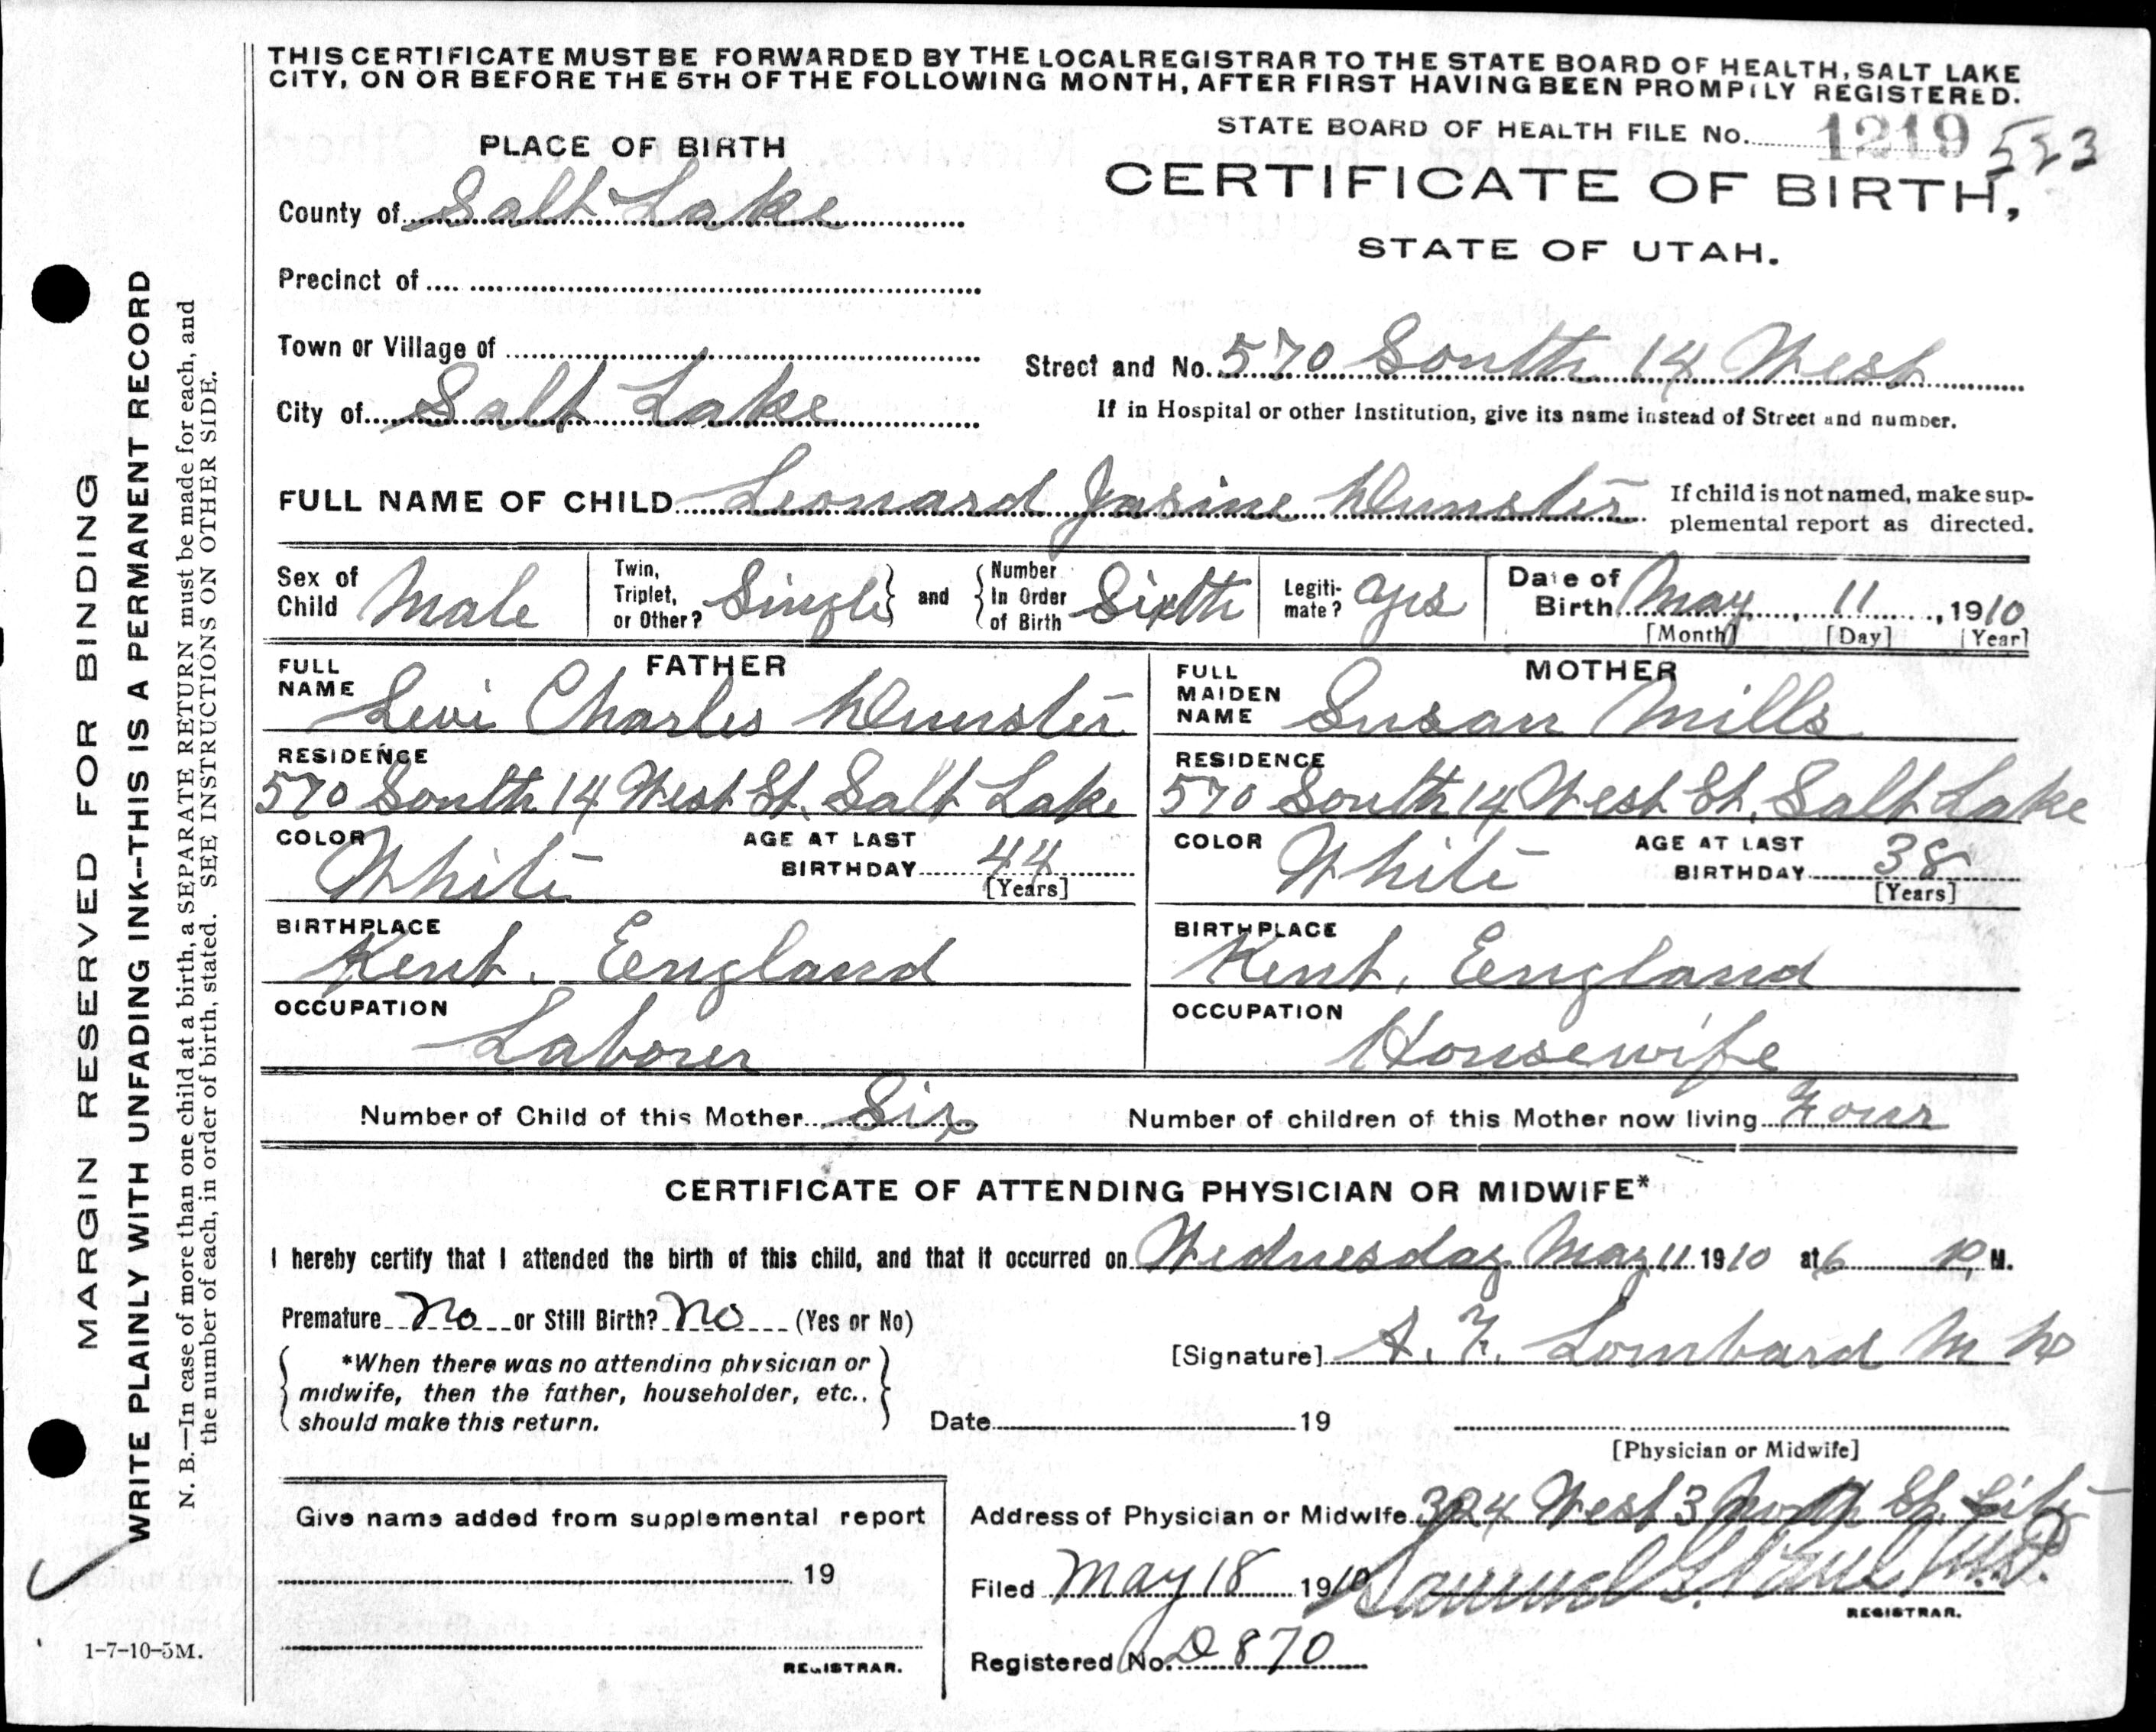 THIS CERTIFICATE MUST BE FORWARDED BY THE LOCAL REGISTRAR TO THE STATE BOARD OF HEALTH, SALT LAKE
CITY, ON OR BEFORE THE 5TH OF THE FOLLOWING MONTH, AFTER FIRST HAVING BEEN PROMPTLY REGISTERED.
STATE BOARD OF HEALTH FILE No. 1219 523
PLACE OF BIRTH
CERTIFICATE OF BIRTH,
STATE OF UTAH.
County of Salt Lake
Precinct of
Town or Village of
Street and No. 570 South 14 West
City of Salt Lake
If in Hospital or other Institution, give its name instead of Street and number.
FULL NAME OF CHILD Leonard Dunster
If child is not named, make sup-
plemental report as directed.
Sex of Child Male
Twin, Triplet, or Other? Single and Number In Order of Birth Sixth
Legiti-mate? Yes
Date of Birth May 11, 1910
[Month] [Day] [Year]
FATHER
FULL NAME Levi Charles Dunster
RESIDENCE
570 South 14 West St. Salt Lake
COLOR White AGE AT LAST BIRTHDAY 44
[Years]
BIRTHPLACE
Kent, England
OCCUPATION
Laborer
MOTHER
FULL MAIDEN NAME Susan Mills
RESIDENCE
570 South 14 West St, Salt Lake
COLOR White AGE AT LAST BIRTHDAY 38
[Years]
BIRTHPLACE
Kent, England
OCCUPATION
Housewife
Number of Child of this Mother Six Number of children of this Mother now living Four
CERTIFICATE OF ATTENDING PHYSICIAN OR MIDWIFE*
I hereby certify that I attended the birth of this child, and that it occurred on Wednesday May 11 1910 at 6 P. M.
Premature No or Still Birth? No (Yes or No)
[Signature] A. F. Lombard M D
*When there was no attending physician or
midwife, then the father, householder, etc.,
should make this return.
Date 19
[Physician or Midwife]
Give name added from supplemental report
19
REGISTRAR.
Address of Physician or Midwife 324 West 3 North St. City
Filed May 18 1910 Samuel G. Paul M.D.
REGISTRAR.
Registered No. D 870
MARGIN RESERVED FOR BINDING
WRITE PLAINLY WITH UNFADING INK--THIS IS A PERMANENT RECORD
N. B.—In case of more than one child at a birth, a SEPARATE RETURN must be made for each, and
the number of each, in order of birth, stated. SEE INSTRUCTIONS ON OTHER SIDE.
1-7-10-5M.